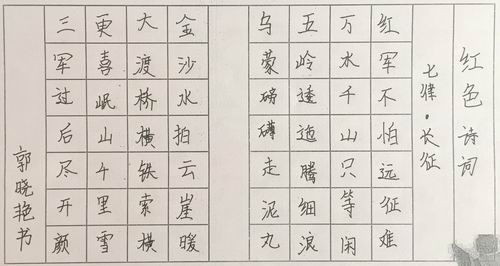 红色诗词
七律·长征
红军不怕远征难
万水千山只等闲
五岭逶迤腾细浪
乌蒙磅礴走泥丸
金沙水拍云崖暖
大渡桥横铁索横
更喜岷山千里雪
三军过后尽开颜
郭晓艳书